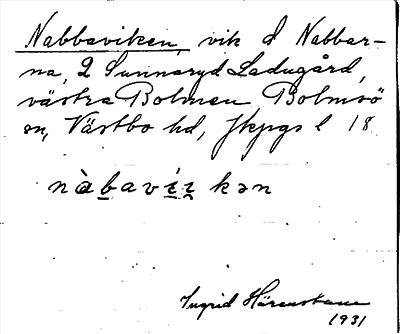 Nabbaviken, vik å Nabbar-
na, 2 Sunnaryd Ladugård,
västra Bolmen Bolmsö
sn, Västbo hd, Jkpgs l 18
nàbavíi̯kən
Ingrid
1931